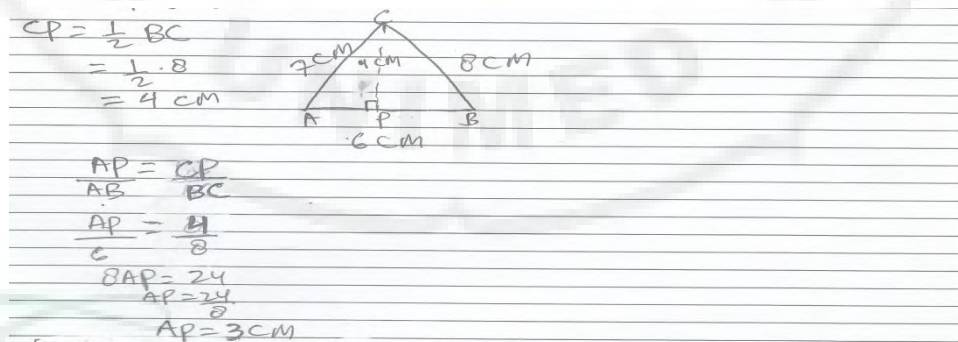 CP = 1/2 BC
= 1/2 . 8
= 4 cm
C
7cm
4 cm
8cm
A
P
B
6 cm
AP/AB = CP/BC
AP/6 = 4/8
8AP = 24
AP = 24/8
AP = 3cm